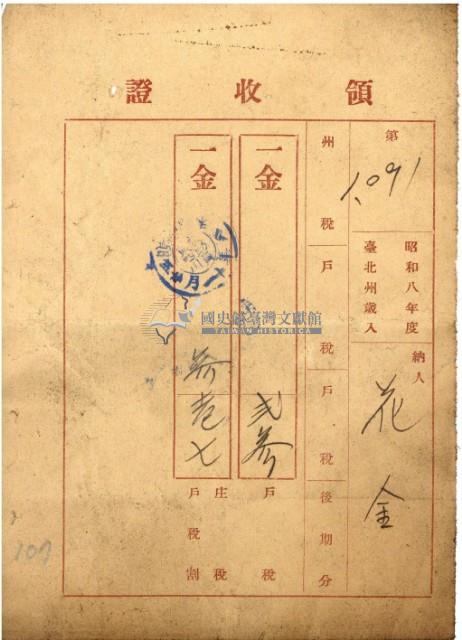 領收證
第1,091
昭和八年度
臺北州歲入
納人
花金
州稅戶稅戶稅後期分
一金
弍參
戶稅
一金
參壱七
庄稅
戶稅割
國史館臺灣文獻館
TAIWAN HISTORICA
107